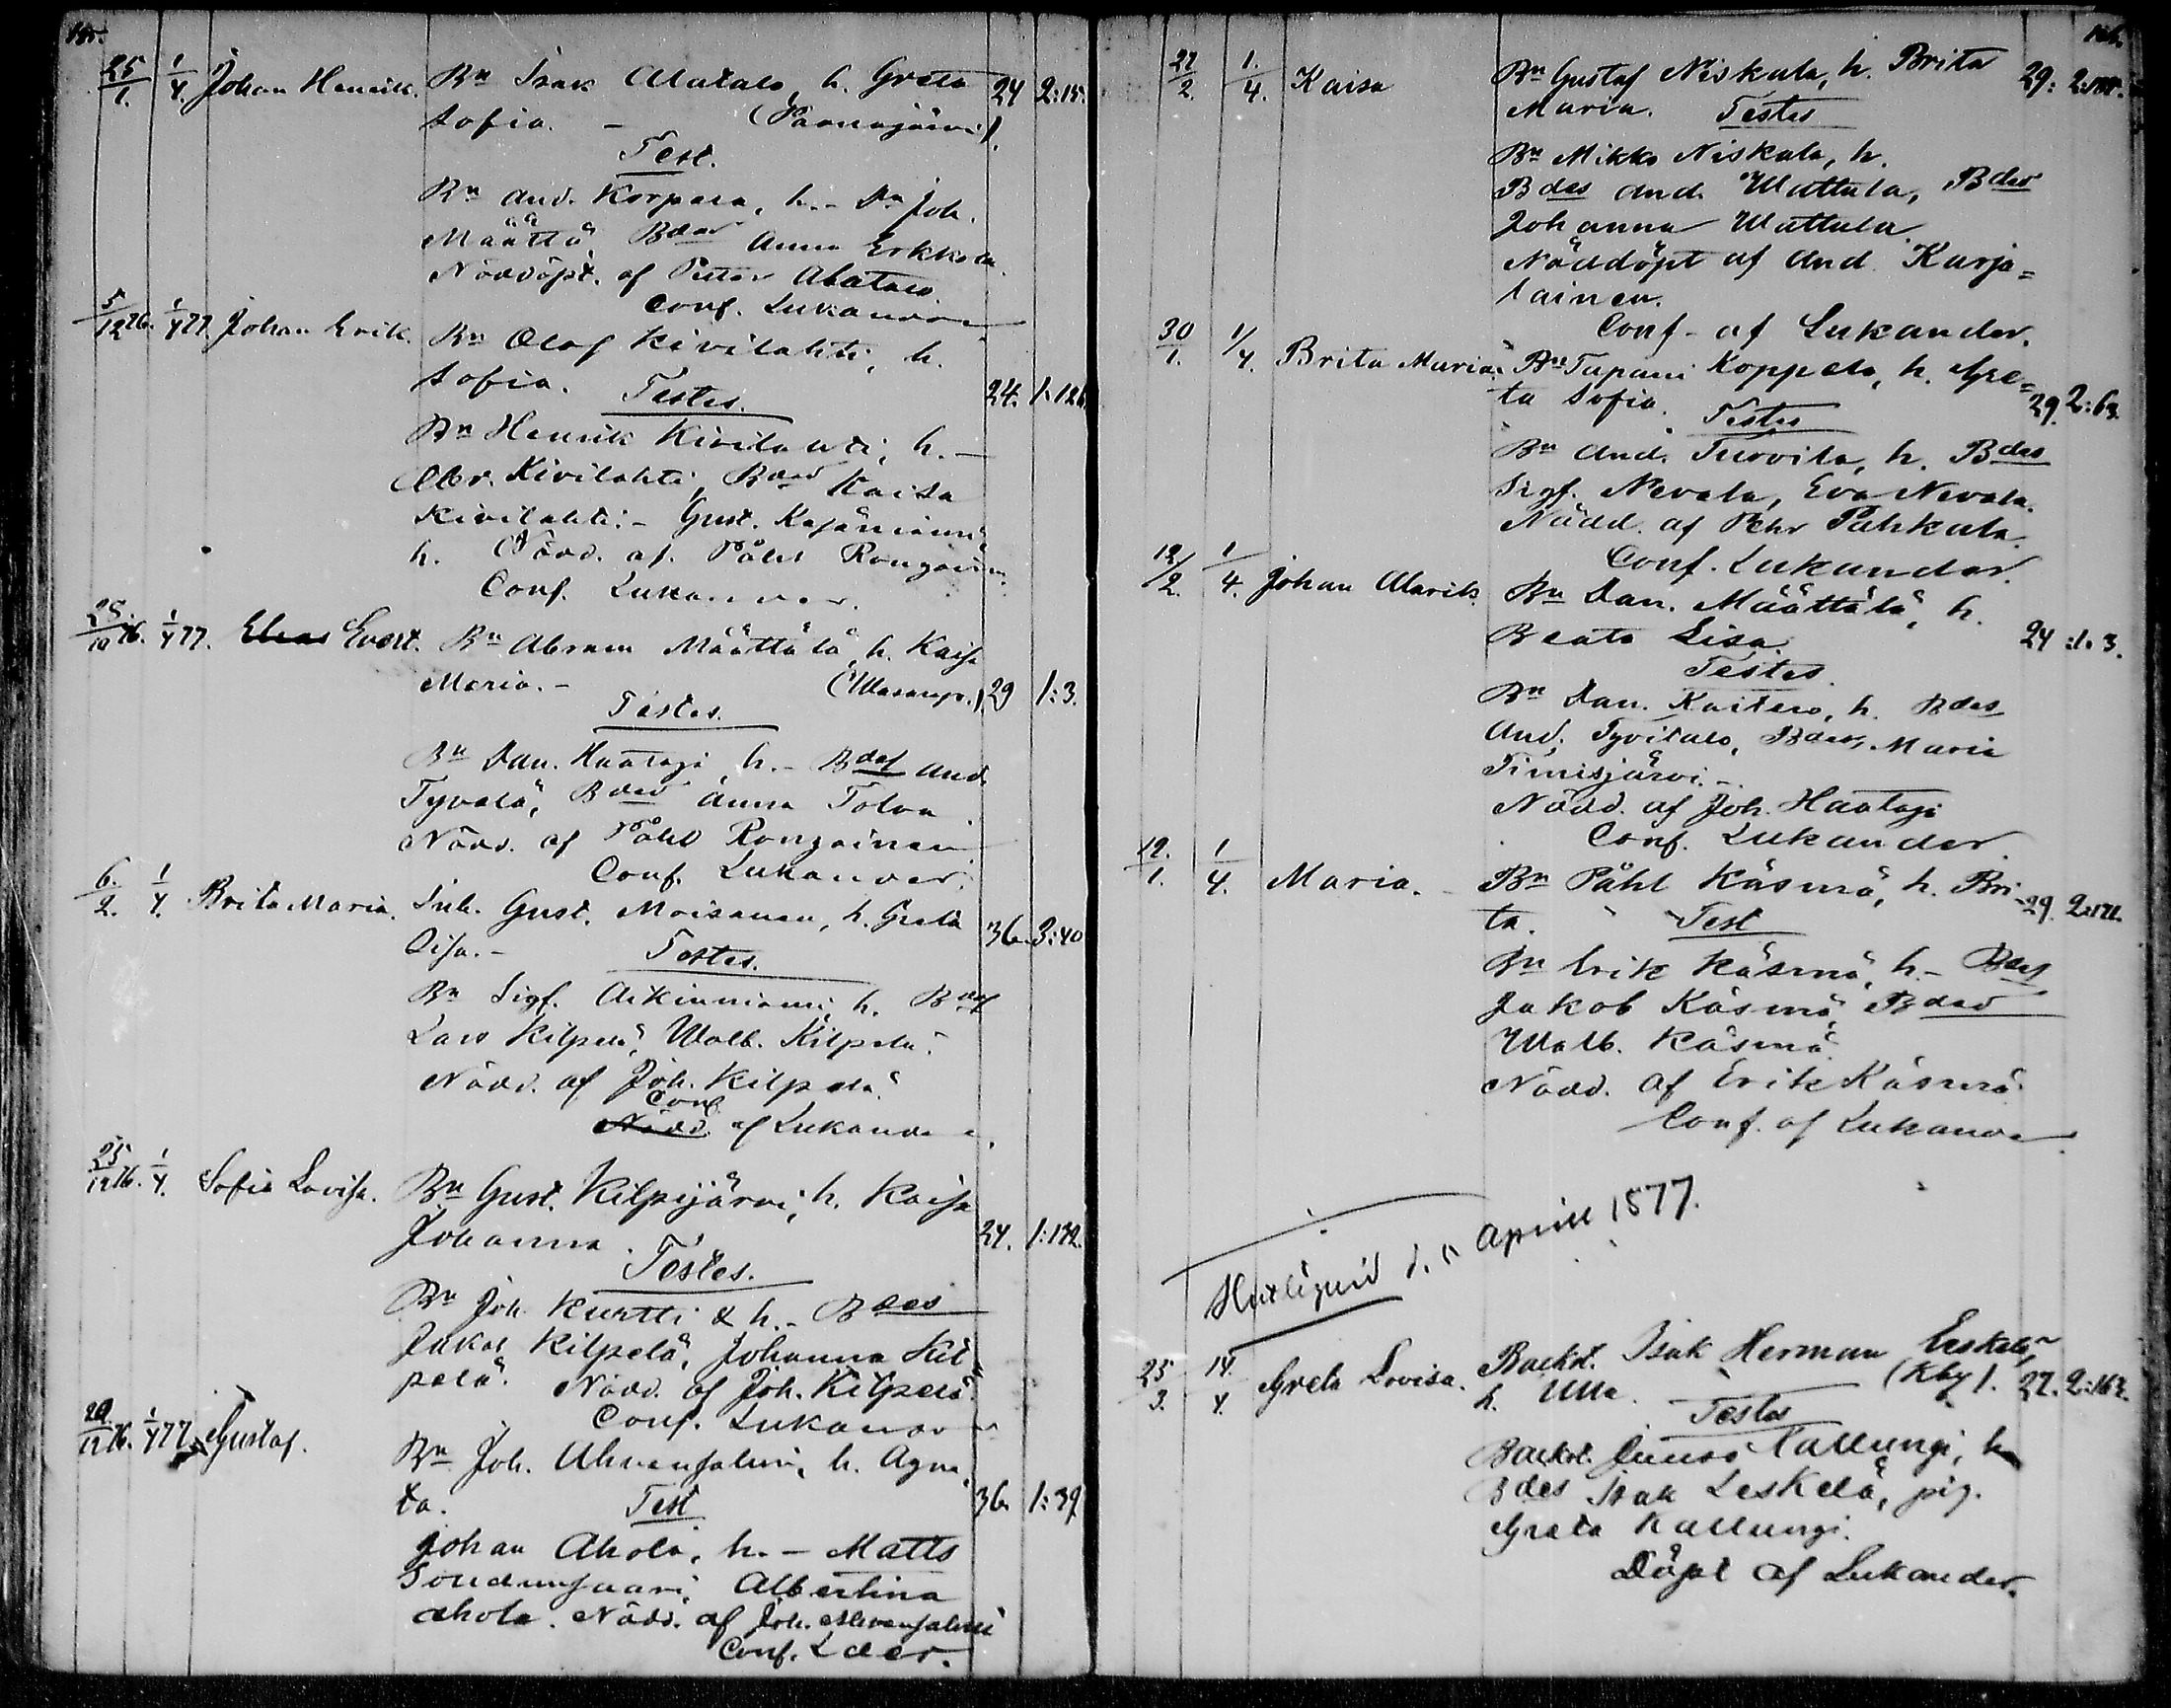 25/1. 1/4. Johan Henrik. Bn Isak Alatalo, h. Greta 24 2:15.
Sofia. – (Paanajärvi).
Test.
Bn And. Korpua, h. – Dn Joh.
Määttä, Bdar Anna Erkkola.
Nöddöpt. af Petter Alatalo.
Conf. Lukander
5/12 76. 1/4 77. Johan Erik. Bn Olof Kivilahti, h.
Sofia. Testes. 24. 1:126.
Bn Henrik Kivilahti, h. –
Abr. Kivilahti, Bdar Kaisa
Kivilahti. – Gust. Kajäniemi,
h. Nödd. af Påhl Rongainen.
Conf. Lukander.
1/4 77. Elias Evert. Bn Abram Määttälä, h. Kajsa
Maria. – 29 1:3.
Testes.
Bn Dan. Haataja, h. – Bdes And.
Tyvelä, Bdar Anna Tolva.
Nödd. af Påhl Rongainen.
Conf. Lukander.
6./2. 1/4. Brita Maria. Inh. Gust. Moisanen, h. Greta 36. 3:40
Lisa. – Testes.
Bn Sigf. Aikinniemi, h. Bdes
Lars Kilpelä, Walb. Kilpelä.
Nödd. af Joh. Kilpelä.
Conf
Nödd. af Lukander.
25/12 76. 1/4. Sofia Lovisa. Bn Gust. Kilpijärvi, h. Kajsa
Johanna. 24. 1:132.
Testes.
Bn Joh. Kurtti & h. – Bdes
Jakob Kilpelä, Johanna Kil
pelä. Nödd. af Joh. Kilpelä.
Conf. Lukander
1/4 77. Gustaf. Bn Joh. Ahvensalmi, h. Agne
ta. Test 36. 1:39.
Johan Ahola, h. – Matts
Albertina
Ahola. Nödd. af Joh. Ahvensalmi
Conf. Lder.
1./4. Kaisa Bn Gustaf Niskala, h. Brita 29:
Maria. Testes
Bn Mikko Niskala, h.
Bdes And. Wattula, Bdar
Johanna Wattula
Nöddöpt af And. Karja=
lainen.
Conf – af Lukander.
30/1. 1/4. Brita Maria. Bn Tapani Koppelo, h. Gre=
ta Sofia. 29. 2:63.
Testes
Bn And. Turvila, h. Bdes
Sigf. Nevala, Eva Nevala.
Nödd. af Pehr Pahkala.
Conf. Lukander.
12/2. 1/4. Johan Alarik. Bn Dan. Määttälä, h.
Beata Lisa. 24 1:3.
Testes.
Bn Dan. Kaitero, h. Bdes
And. Tyvitalo, Bdar, Maria
Timisjärvi. –
Nödd. af Joh. Haataja
Conf. Lukander
12./1. 1/4. Maria. Bn Påhl Käsmä, h. Bri- 29. 2:171.
ta. Test
Bn Erik Käsmä, h – Bdes
Jakob Käsmä Bdar
Walb. Käsmä.
Nödd. af Erik Käsmä.
Conf. af Lukander
April 1877.
25/3. 14./4. Greta Lovisa. Backst. Isak Herman Leskelä,
h. Ulla. (Kby). 27. 2:162.
Testes
Backst. Juuso Kallungi, h
Bdes Isak Leskelä, pig.
Greta Kallungi.
Döpt af Lukander.